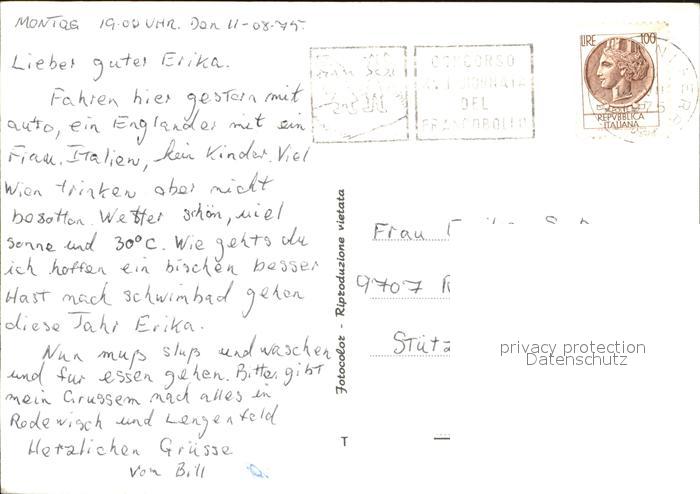 MONTAG 19.00 UHR. Den 11-08-75.
Lieber guter Erika.
Fahren hier gestern mit
auto, ein Englander mit ein
Frau. Italien, kein Kinder. Viel
Wien trinken aber nicht
besotten. Wetter schön, viel
sonne und 30°C. Wie gehts du
ich hoffen ein bischen besser
Hast nach schwimbad gehen
diese Jahr Erika.
Nun muß sluß und waschen
und fur essen gehen. Bitte, gibt
mein Grussem nach alles in
Rodewisch und Lengenfeld
Herzlichen Grüsse
Von Bill
CONCORSO
GIORNATA
DEL
FRANCOBOLLO
LIRE 100
REPVBBLICA
ITALIANA
Fotocolor - Riproduzione vietata
Frau
9707
Stütz
privacy protection
Datenschutz
T